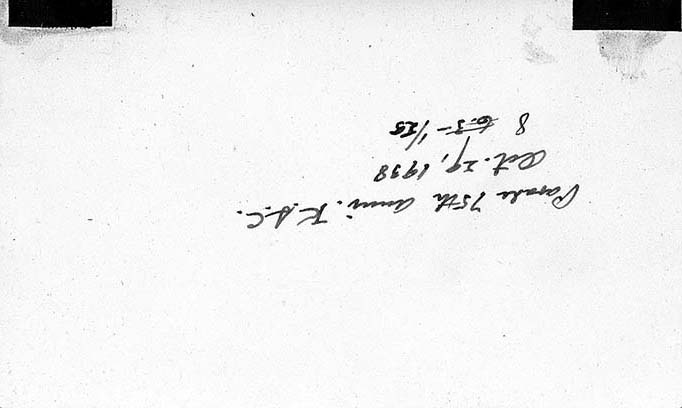 Parade 75th Anni. K.S.C.
Oct. 29, 1938
8 6.3 - 1/25